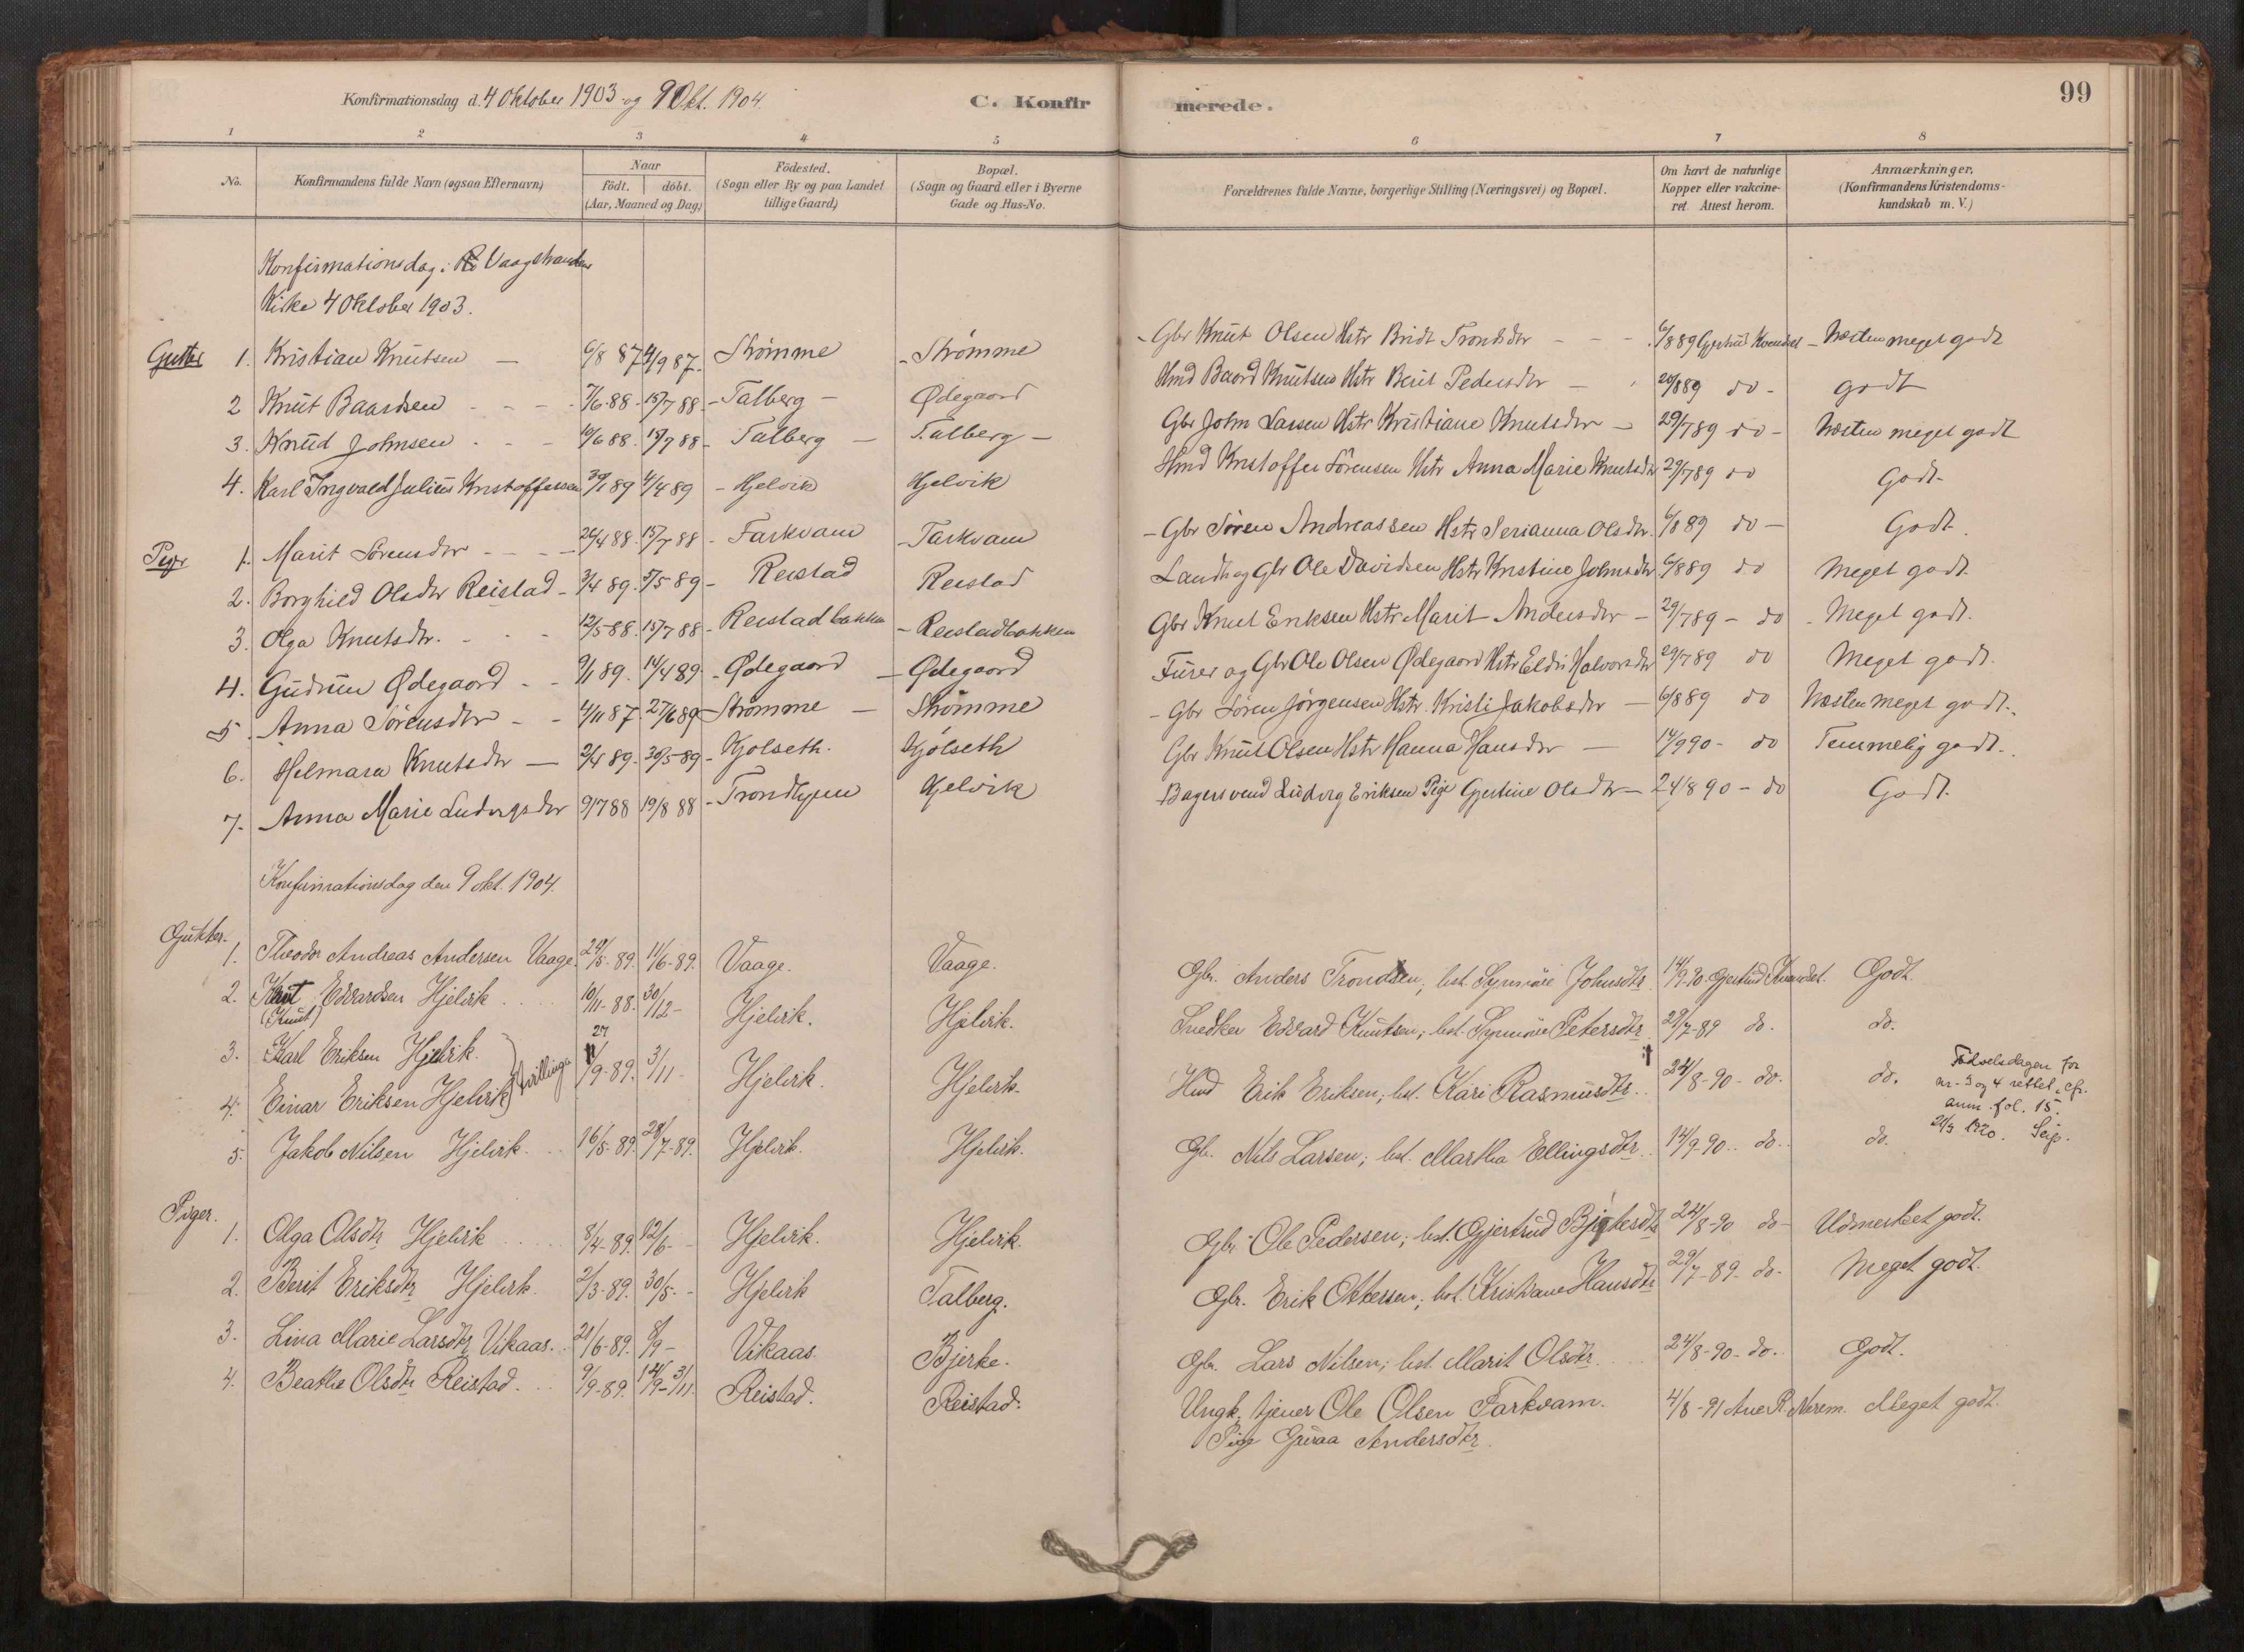 Konfirmationsdag d. 4 Oktober 1903 og 9 Okt. 1904.
C. Konfirmerede.
99
1 2 3 4 5 6 7 8
No. Konfirmandens fulde Navn (ogsaa Efternavn) Naar födt. döbt. (Aar, Maaned og Dag) Födested. (Sogn eller By og paa Landet tillige Gaard) Bopæl. (Sogn og Gaard eller i Byerne Gade og Hus-No. Forældrenes fulde Navne, borgerlige Stilling (Næringsvei) og Bopæl. Om havt de naturlige Kopper eller vakcineret. Attest herom. Anmærkninger. (Konfirmandens Kristendomskundskab m. V.)
Konfirmationsdag i Vaagstrandens
Kirke 4 Oktober 1903.
Gutter 1. Kristian Knutsen 6/8 87 4/9 87 Strömme Strömme Gbr Knut Olsen Hstr Bridt Trondsdtr 6/8 89 Næsten meget godt
2 Knut Baardsen 7/6 88 15/7 88 Talberg Ødegaard Hmd Baard Knutsen Hstr Berit Pedersdtr 20/8 89 do godt
3. Knud Johnsen 10/6 88 15/7 88 Talberg Talberg Gbr John Larsen Hstr Kristiane Knutsdtr 29/7 89 do Næsten meget godt
4. Karl Ingvald Julius Kristoffersen 30/1 89 4/4 89 Hjelvik Hjelvik Hmd Kristoffer Sörensen Hstr Anna Marie Knutsdtr 29/7 89 do Godt
Piger 1. Marit Sörensdtr 26/4 88 15/7 88 Farkvam Farkvam Gbr Sören Andreassen Hstr Serianna Olsdtr. 6/8 89 do Godt.
2. Borghild Olsdtr Reistad 3/4 89 5/5 89 Reistad Reistad Landh og Gbr Ole Davidsen Hstr Kristine Johnsdtr 6/8 89 do Meget godt
3. Olga Knutsdtr. 12/5 88 15/7 88 Reistadbakken Reistadbakken Gbr Knut Eriksen Hstr Marit Andersdtr 29/7 89 do Meget godt.
4. Gudrun Ødegaard 9/1 89 14/4 89 Ødegaard Ødegaard Furer og Gbr Ole Olsen Ødegaard Hstr Eldri Halvorsdtr 29/7 89 do Meget godt.
5. Anna Sörensdtr 4/11 87 27/6 89 Strömme Strömme Gbr Sören Jörgensen Hstr. Kristi Jakobsdtr 6/8 89 do Næsten meget godt.
6. Helmara Knutsdtr 2/4 89 30/5 89 Kjölseth Kjölseth Gbr Knut Olsen Hstr Hanna Hansdtr 14/9 90 do Temmelig godt.
7. Anna Marie Ludvigsdtr 9/7 88 19/8 88 Trondhjem Hjelvik Bagersvend Ludvig Eriksen Pige Gjertine Olsdtr 24/8 90 do Godt.
Konfirmationsdag den 9 okt. 1904.
Gutter. 1. Theodor Andreas Andersen Vaage. 29/5-89. 11/6-89. Vaage. Vaage. Gbr. Anders Trondsen; hst. Synnöve Johnsdtr. 14/9-90. Gjertrud Godt.
2. Knut Edvardsen Hjelvik 10/11-88. 30/12- Hjelvik. Hjelvik. Snedker Edvard Knutsen; hst. Synnöve Petersdtr 29/7-89 do. do.
(Knut)
3. Karl Eriksen Hjelvik. 27/9-89. 3/11- Hjelvik. Hjelvik. Hmd Erik Eriksen; hst. Kari Rasmusdtr. 24/8-90- do. do.
4. Einar Eriksen Hjelvik tvillinger
Födselsdagen for
nr. 3 og 4 rettet, cfr.
anm. fol. 15.
21/3 1920. Seip.
5. Jakob Nilsen Hjelvik. 16/5-89. 28/7-89. Hjelvik. Hjelvik. Gb. Nils Larsen; hst. Martha Ellingsdtr. 14/9-90.. do. do.
Piger. 1. Olga Olsdtr Hjelvik 8/4-89. 12/6- Hjelvik. Hjelvik. Gbr Ole Pedersen; hst. Gjertrud 24/8-90 do- Udmerket godt.
2. Berit Eriksdtr Hjelvik. 2/3-89. 30/5- Hjelvik Talberg. Gbr. Erik Ottersen; hst. Kristiane Hansdtr 29/7-89- do- Meget godt.
3. Lina Marie Larsdtr Vikaas. 21/6-89. 8/9- Vikaas. Bjerke. Gbr. Lars Nilsen; hst. Marit Olsdtr. 24/8-90- do. Godt.
4. Beathe Olsdtr Reistad. 9/9-89. 14/9- 3/11. Reistad. Reistad. Ungk. tjener Ole Olsen Farkvam. 4/8-91 Ane R. Nerem. Meget godt.
Pige Guraa Andersdtr.